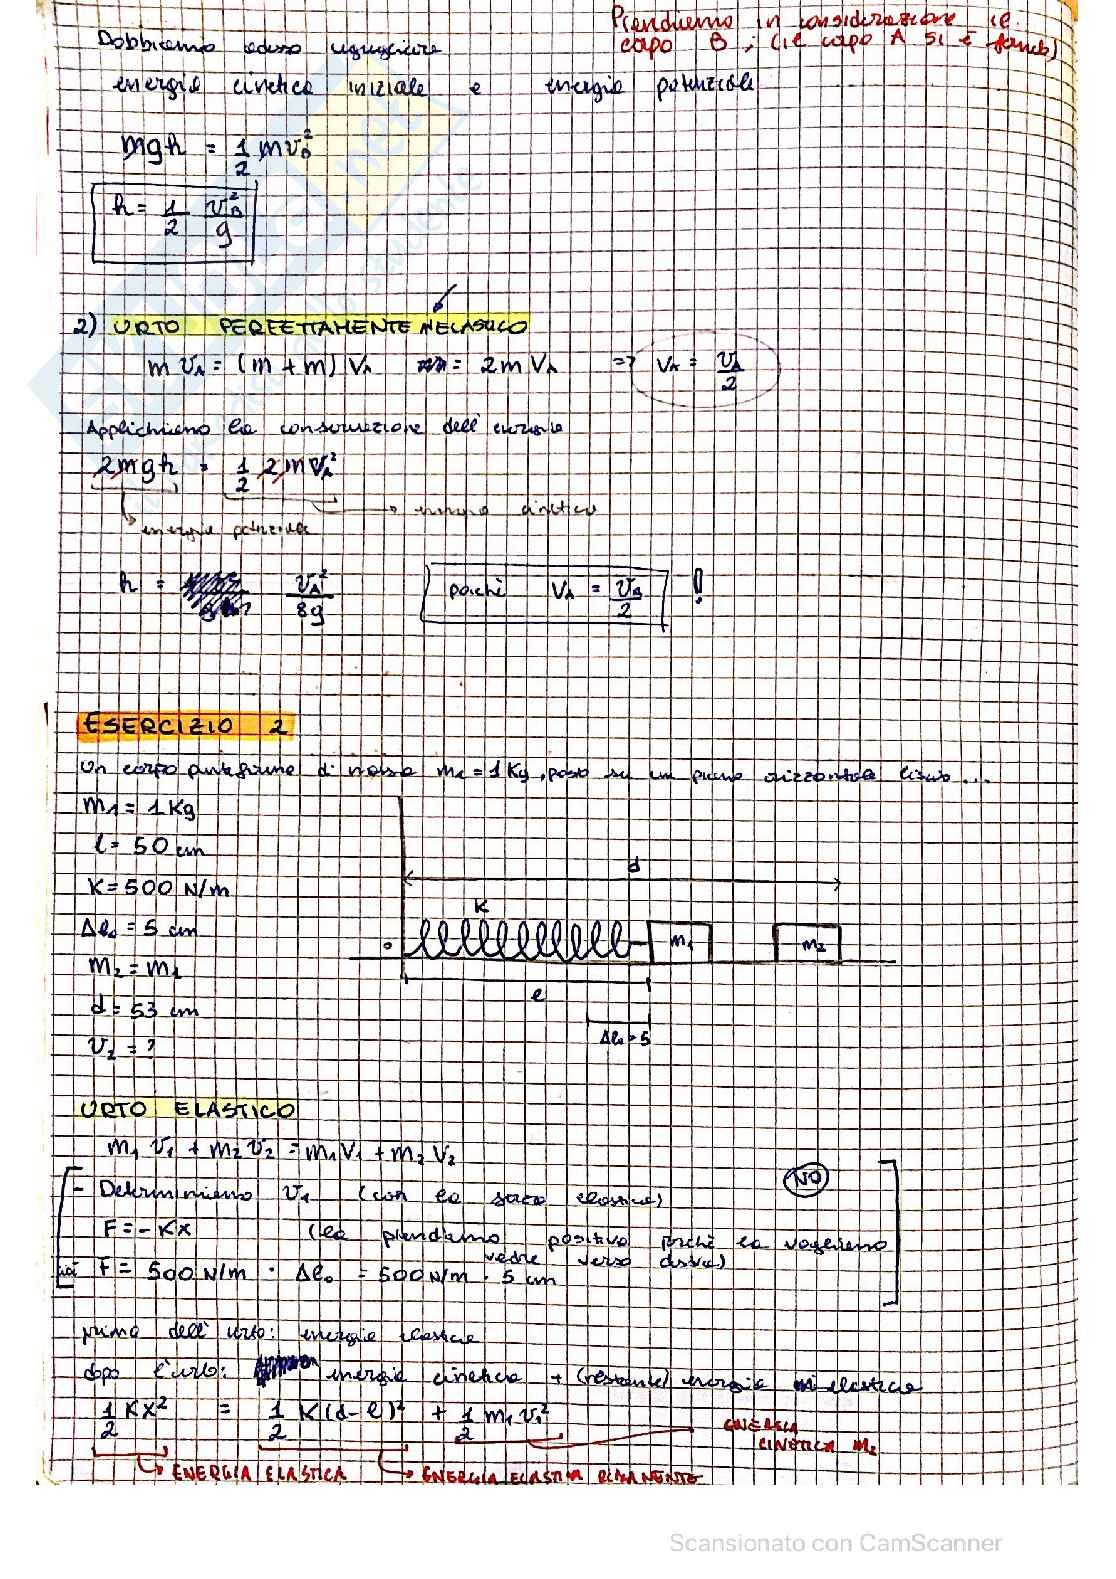 Prendiamo in considerazione il
corpo B ; (il corpo A si è fermato)
Dobbiamo adesso uguagliare
energia cinetica iniziale e energia potenziale
mgh = 1/2 m v_B^2
h = 1/2 v_B^2/g
2) URTO PERFETTAMENTE INELASTICO
m v_A = (m + m) V_A = 2m V_A => V_A = v_A/2
Applichiamo la conservazione dell' energia
2mgh = 1/2 2m V_A^2
energia cinetica
energia potenziale
h = v_A^2/8g poichè V_A = v_B/2 !
ESERCIZIO 2
Un corpo puntiforme di massa m1 = 1 Kg, posto su un piano orizzontale liscio...
m1 = 1 Kg
l = 50 cm
K = 500 N/m
Δl0 = 5 cm
m2 = m1
d = 53 cm
v2 = ?
d
K
m1
m2
o
l
Δl0 = 5
URTO ELASTICO
m1 v1 + m2 v2 = m1 V1 + m2 V2
- Determiniamo v1 (con la forza elastica) NO
F = -Kx (la prendiamo positiva perchè la vogliamo
vedere verso destra)
F = 500 N/m · Δl0 = 500 N/m · 5 cm
prima dell' urto: energia elastica
dopo l'urto: energia cinetica + (restante) energia elastica
1/2 Kx^2 = 1/2 K (d-l)^2 + 1/2 m1 v1^2
ENERGIA
CINETICA m1
ENERGIA ELASTICA
ENERGIA ELASTICA RIMANENTE
Scansionato con CamScanner